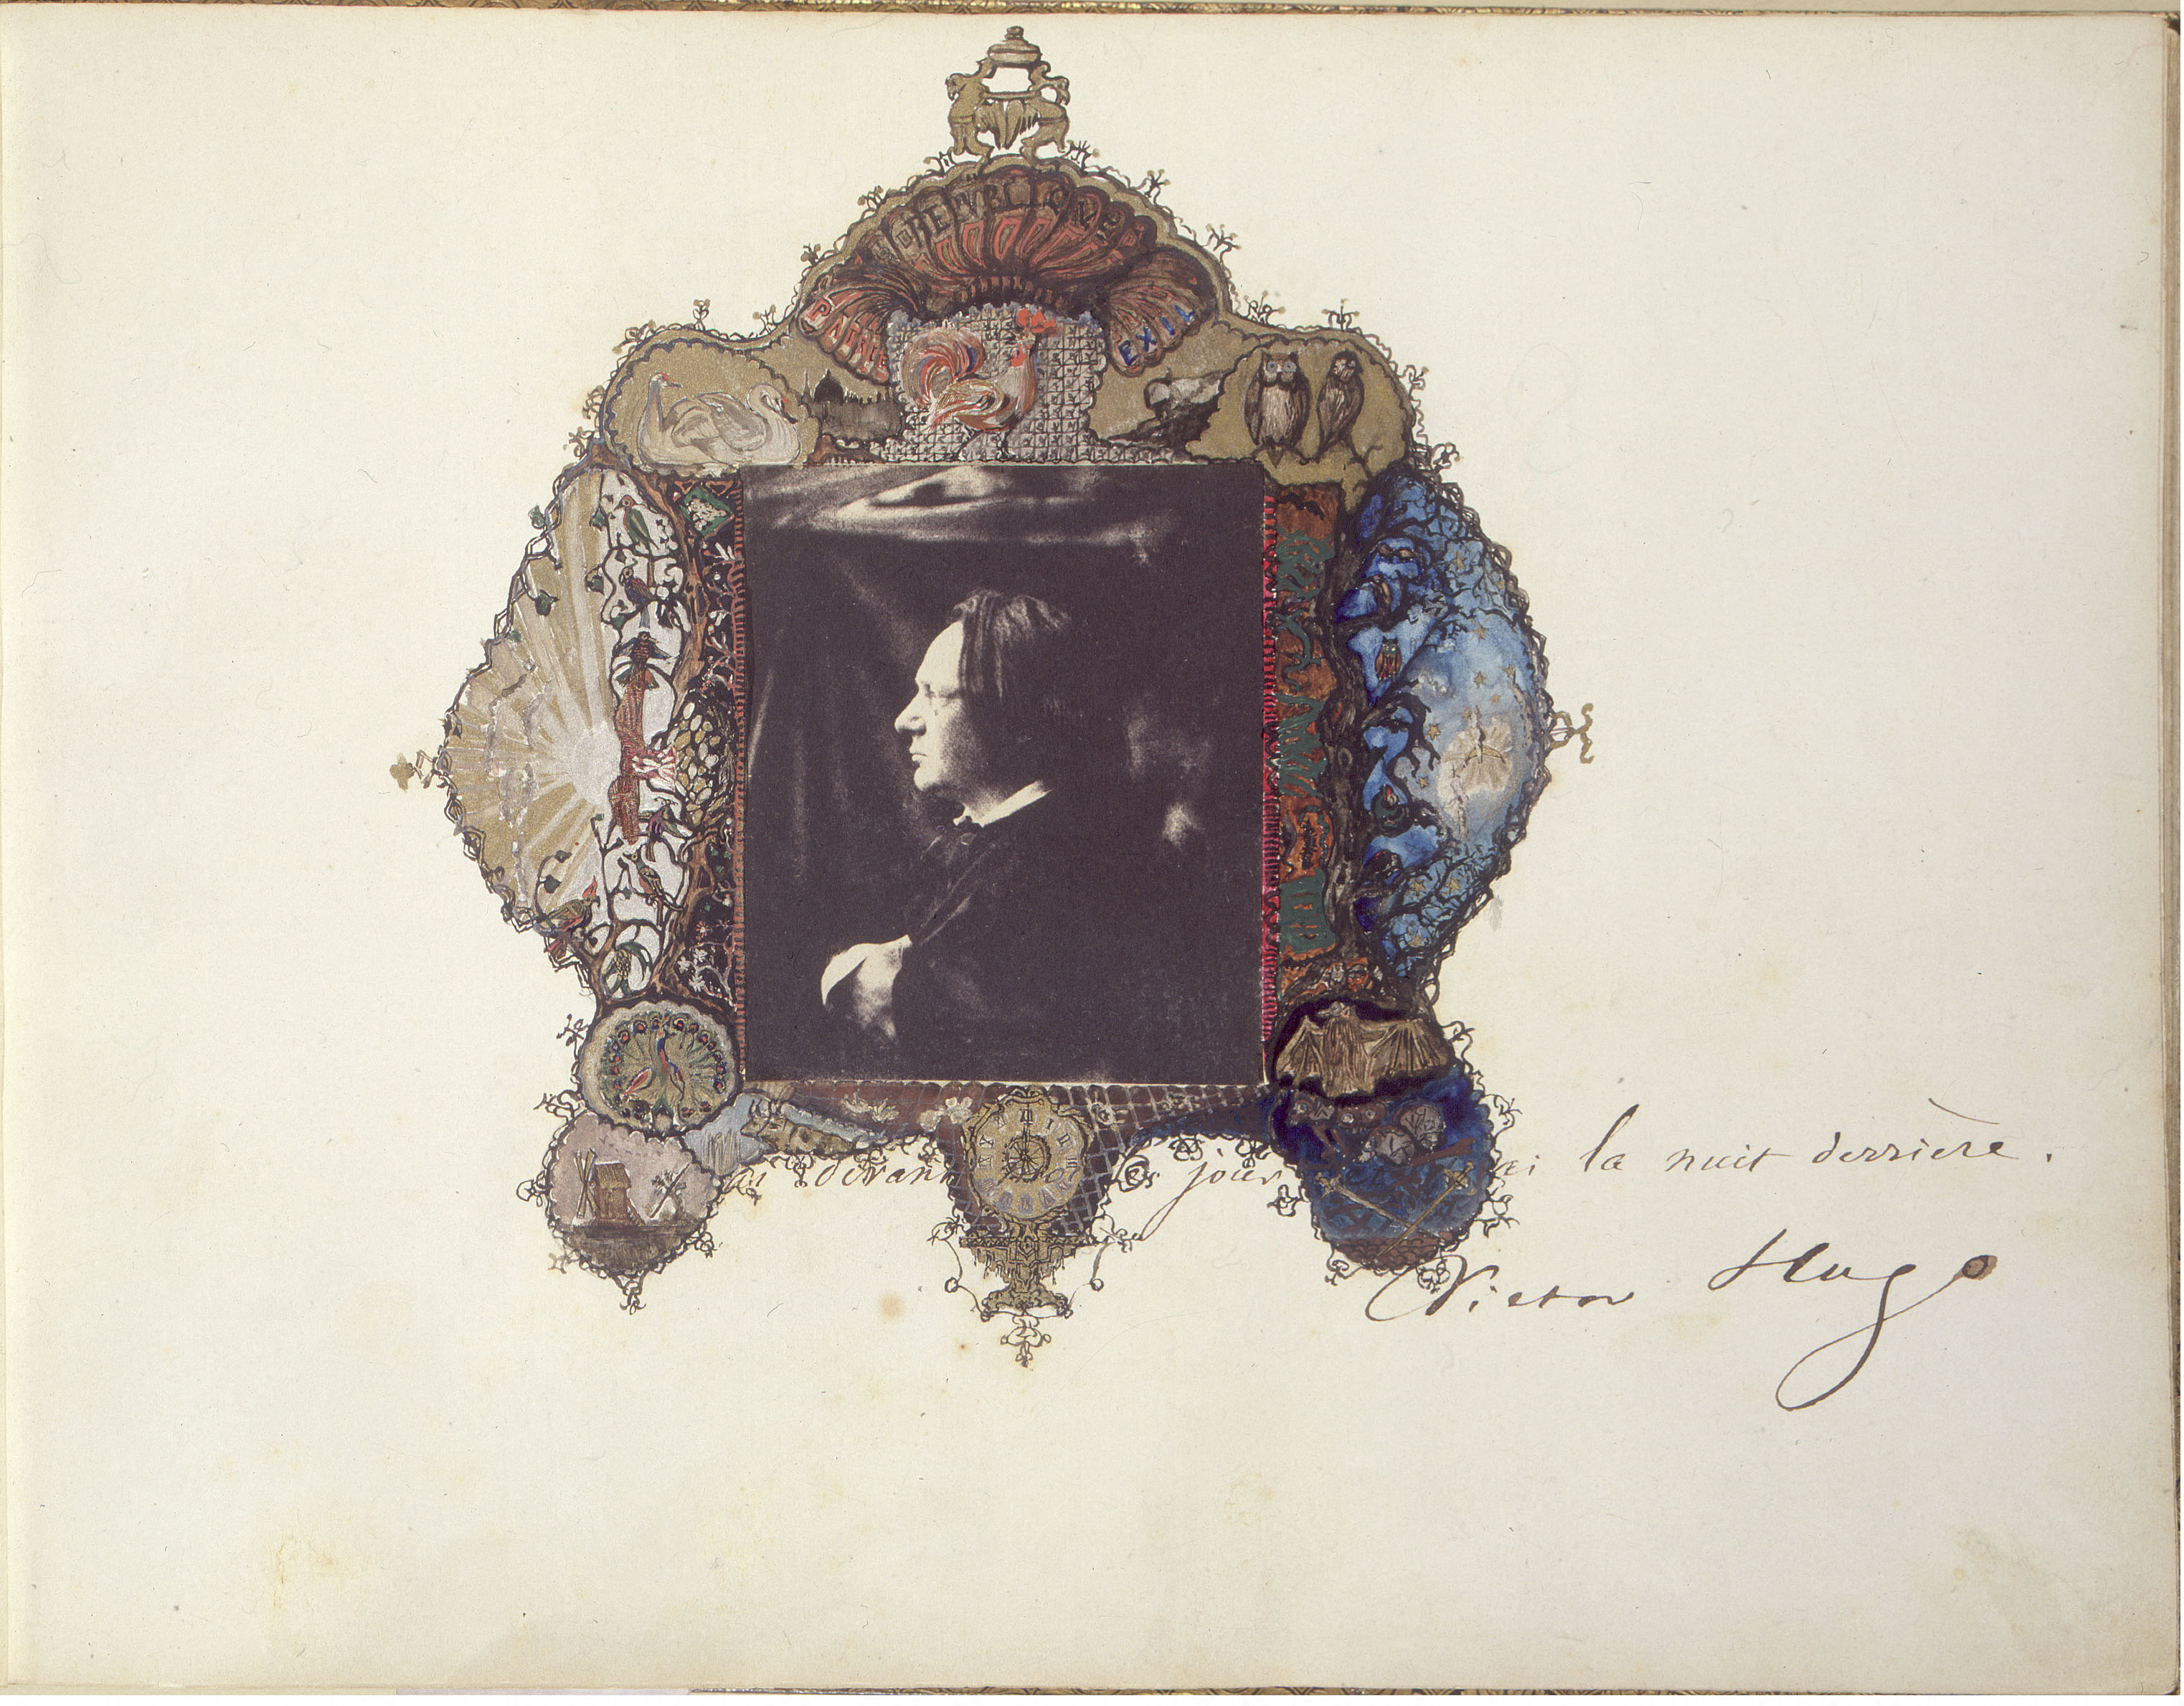 REPVBLIQVE
PATRIE
EXIL
devant les jours ai la nuit derrière.
Victor Hugo